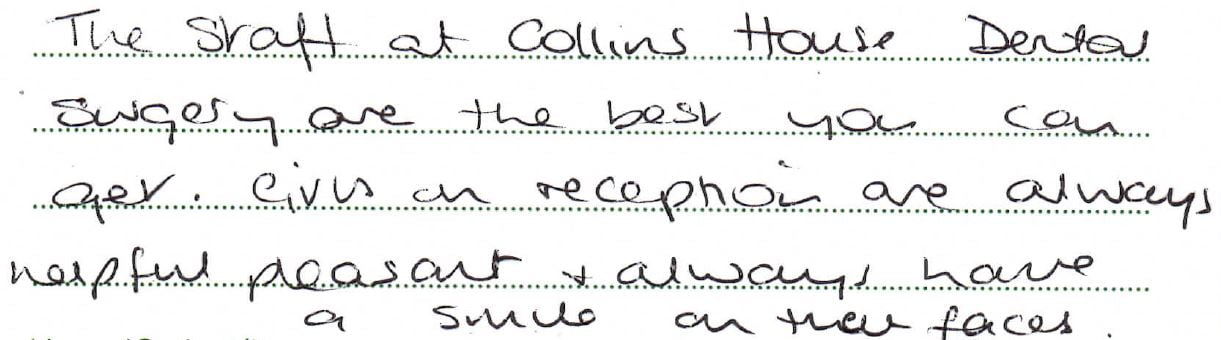 The staff at Collins House Dental
Surgery are the best you can
get. Girls on reception are always
helpful pleasant + always have
a smile on their faces.